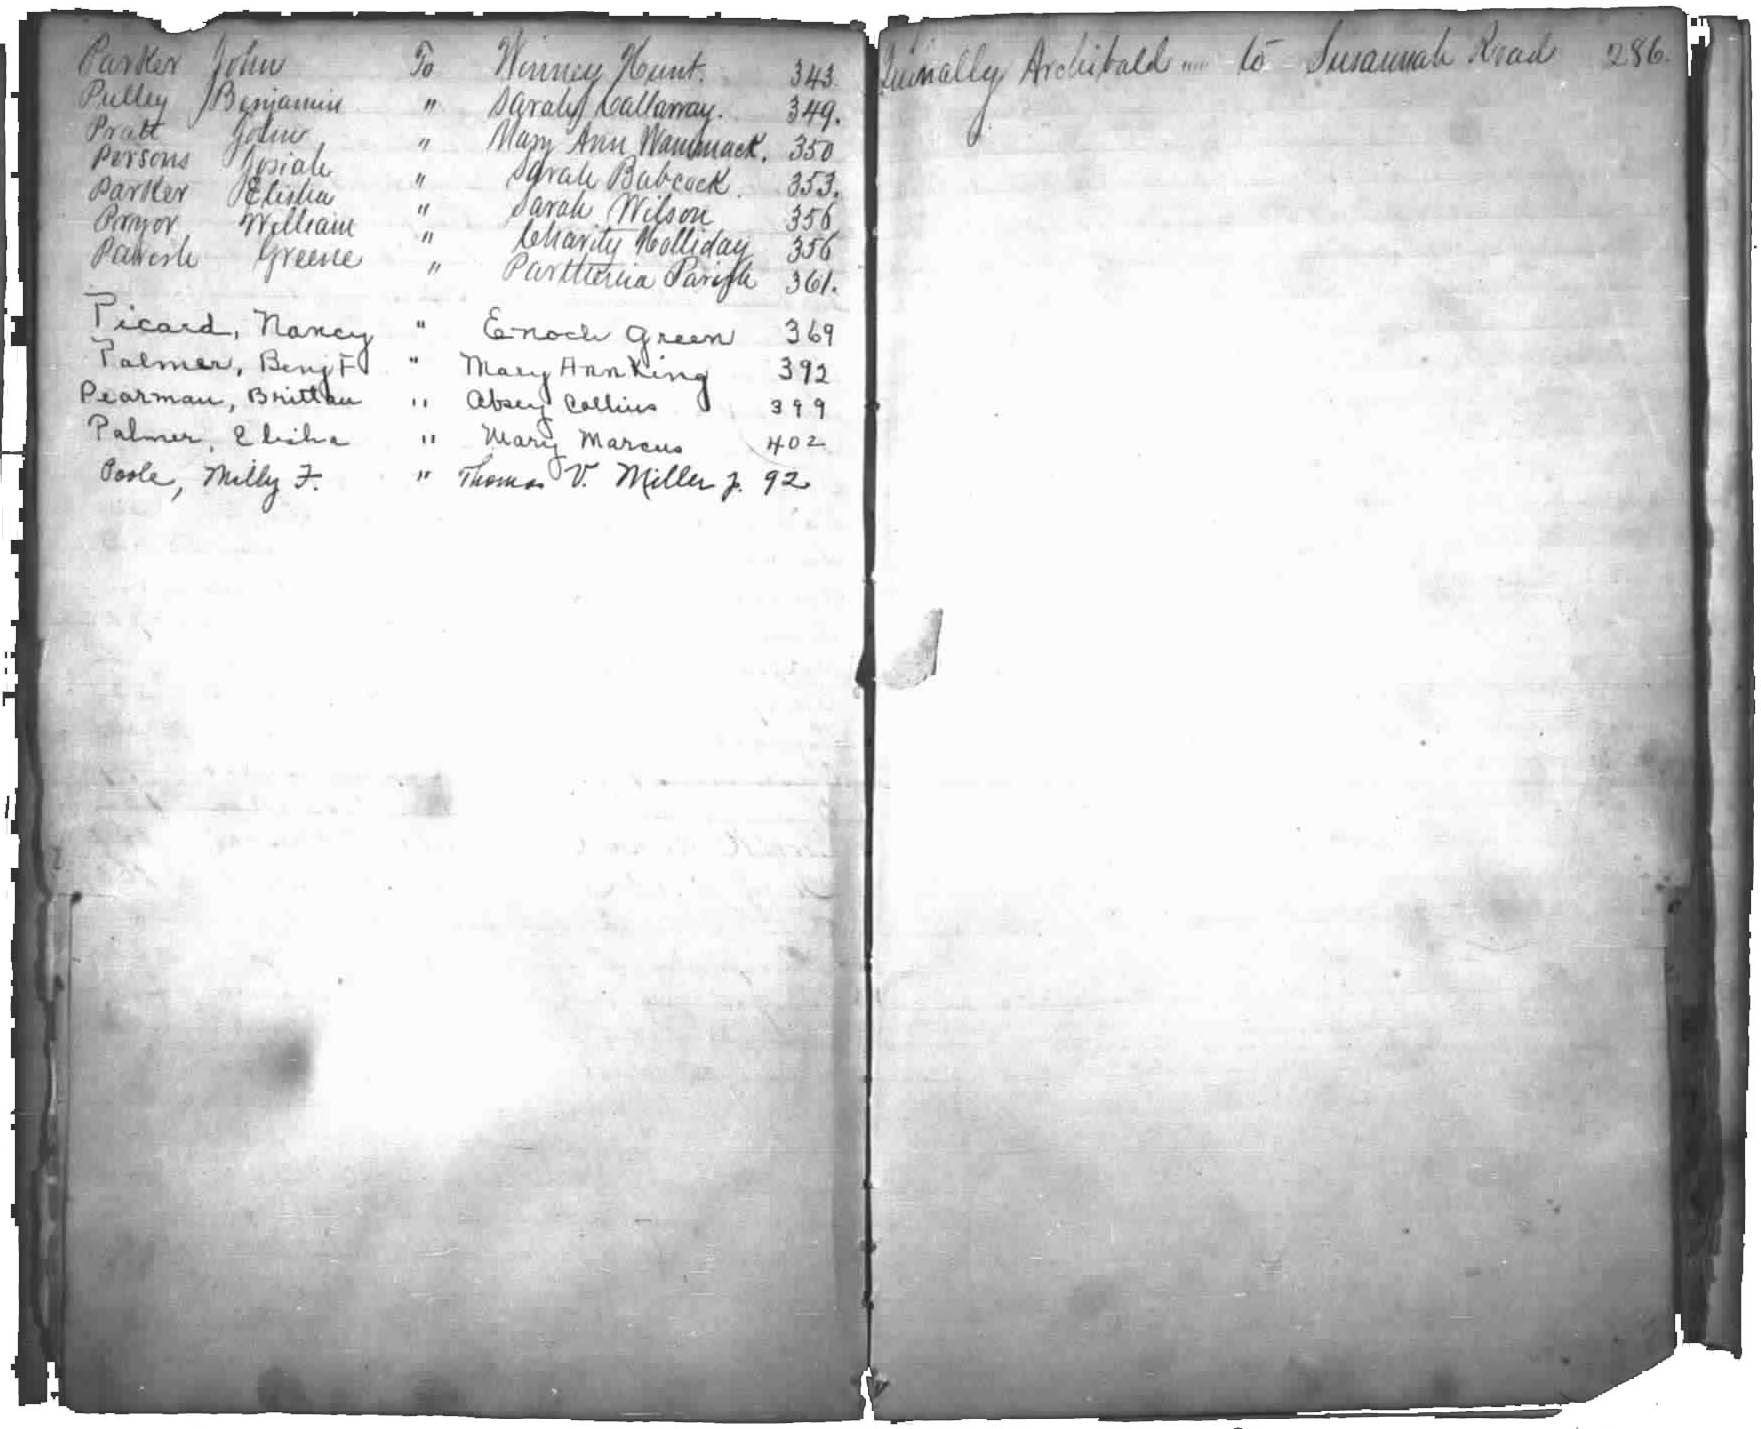 Parker John To Winney Hunt. 343.
Pulley Benjamin " Sarah Callaway. 349.
Pratt John " Mary Ann Wammack. 350
Persons Josiah " Sarah Babcock. 353.
Parker Elisha " Sarah Wilson 356
Pryor William " Charity Holliday 356
Parrish Greene " Parthenia Parish 361.
Picard, Nancy " Enoch Green 369
Palmer, Benj F " Mary Ann King 392
Pearman, Brittan " Absey Collins 399
Palmer, Elisha " Mary Marcus 402
Poole, Milly F. " Thomas V. Miller p. 92
Quinally Archibald to Susannah Read 286.